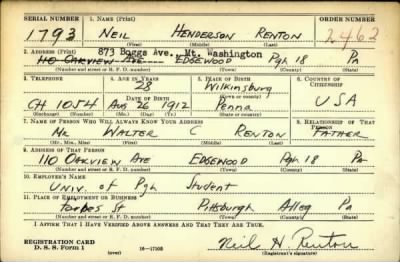 SERIAL NUMBER 1. NAME (Print) ORDER NUMBER
1793 NEIL HENDERSON RENTON 2462
(First) (Middle) (Last)
2. ADDRESS (Print) 873 Boggs Ave., Mt. Washington
110 OAKVIEW AVE EDGEWOOD Pgh 18 Pa
(Number and street or R. F. D. number) (Town) (County) (State)
3. TELEPHONE 4. AGE IN YEARS 5. PLACE OF BIRTH 6. COUNTRY OF CITIZENSHIP
28 Wilkinsburg
DATE OF BIRTH (Town or county)
CH 1054 Aug 26 1912 Penna USA
(Exchange) (Number) (Mo.) (Day) (Yr.) (State or country)
7. NAME OF PERSON WHO WILL ALWAYS KNOW YOUR ADDRESS 8. RELATIONSHIP OF THAT PERSON
Mr WALTER C RENTON FATHER
(Mr., Mrs., Miss) (First) (Middle) (Last)
9. ADDRESS OF THAT PERSON
110 OAKVIEW AVE EDGEWOOD Pgh 18 Pa
(Number and street or R. F. D. number) (Town) (County) (State)
10. EMPLOYER'S NAME
UNIV. of Pgh Student
11. PLACE OF EMPLOYMENT OR BUSINESS
Forbes St Pittsburgh Alleg Pa
(Number and street or R. F. D. number) (Town) (County) (State)
I AFFIRM THAT I HAVE VERIFIED ABOVE ANSWERS AND THAT THEY ARE TRUE.
REGISTRATION CARD
D. S. S. Form 1 (over) 16—17105 Neil H. Renton
(Registrant's signature)